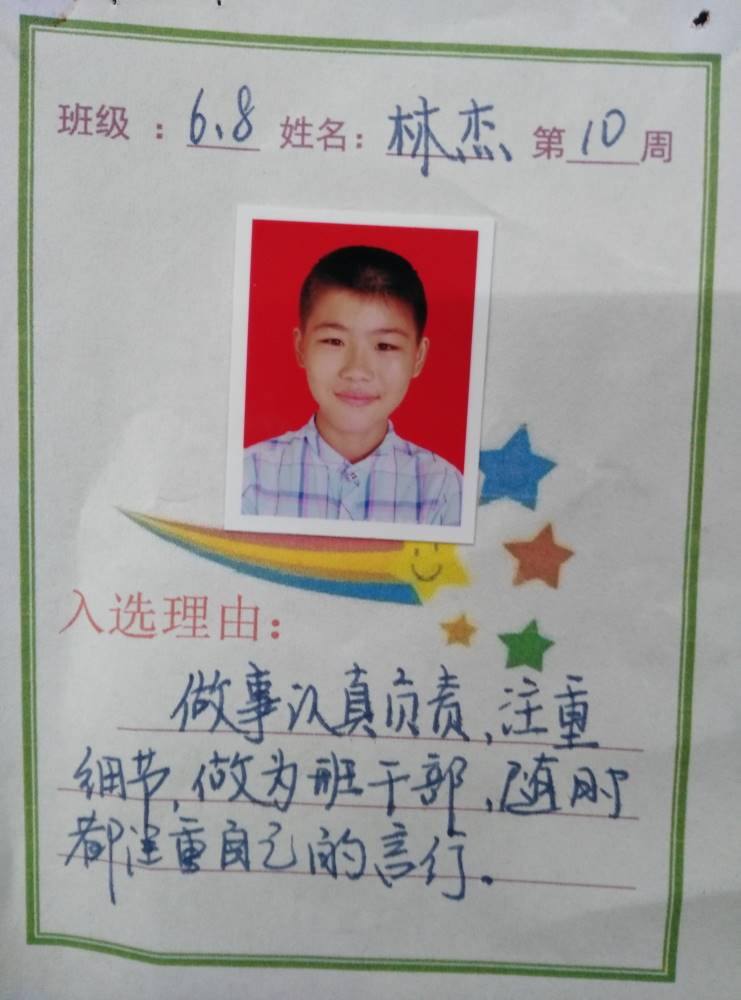 班级：6.8 姓名：林杰 第10周
入选理由：
做事认真负责，注重
细节，做为班干部，随时
都注重自己的言行。